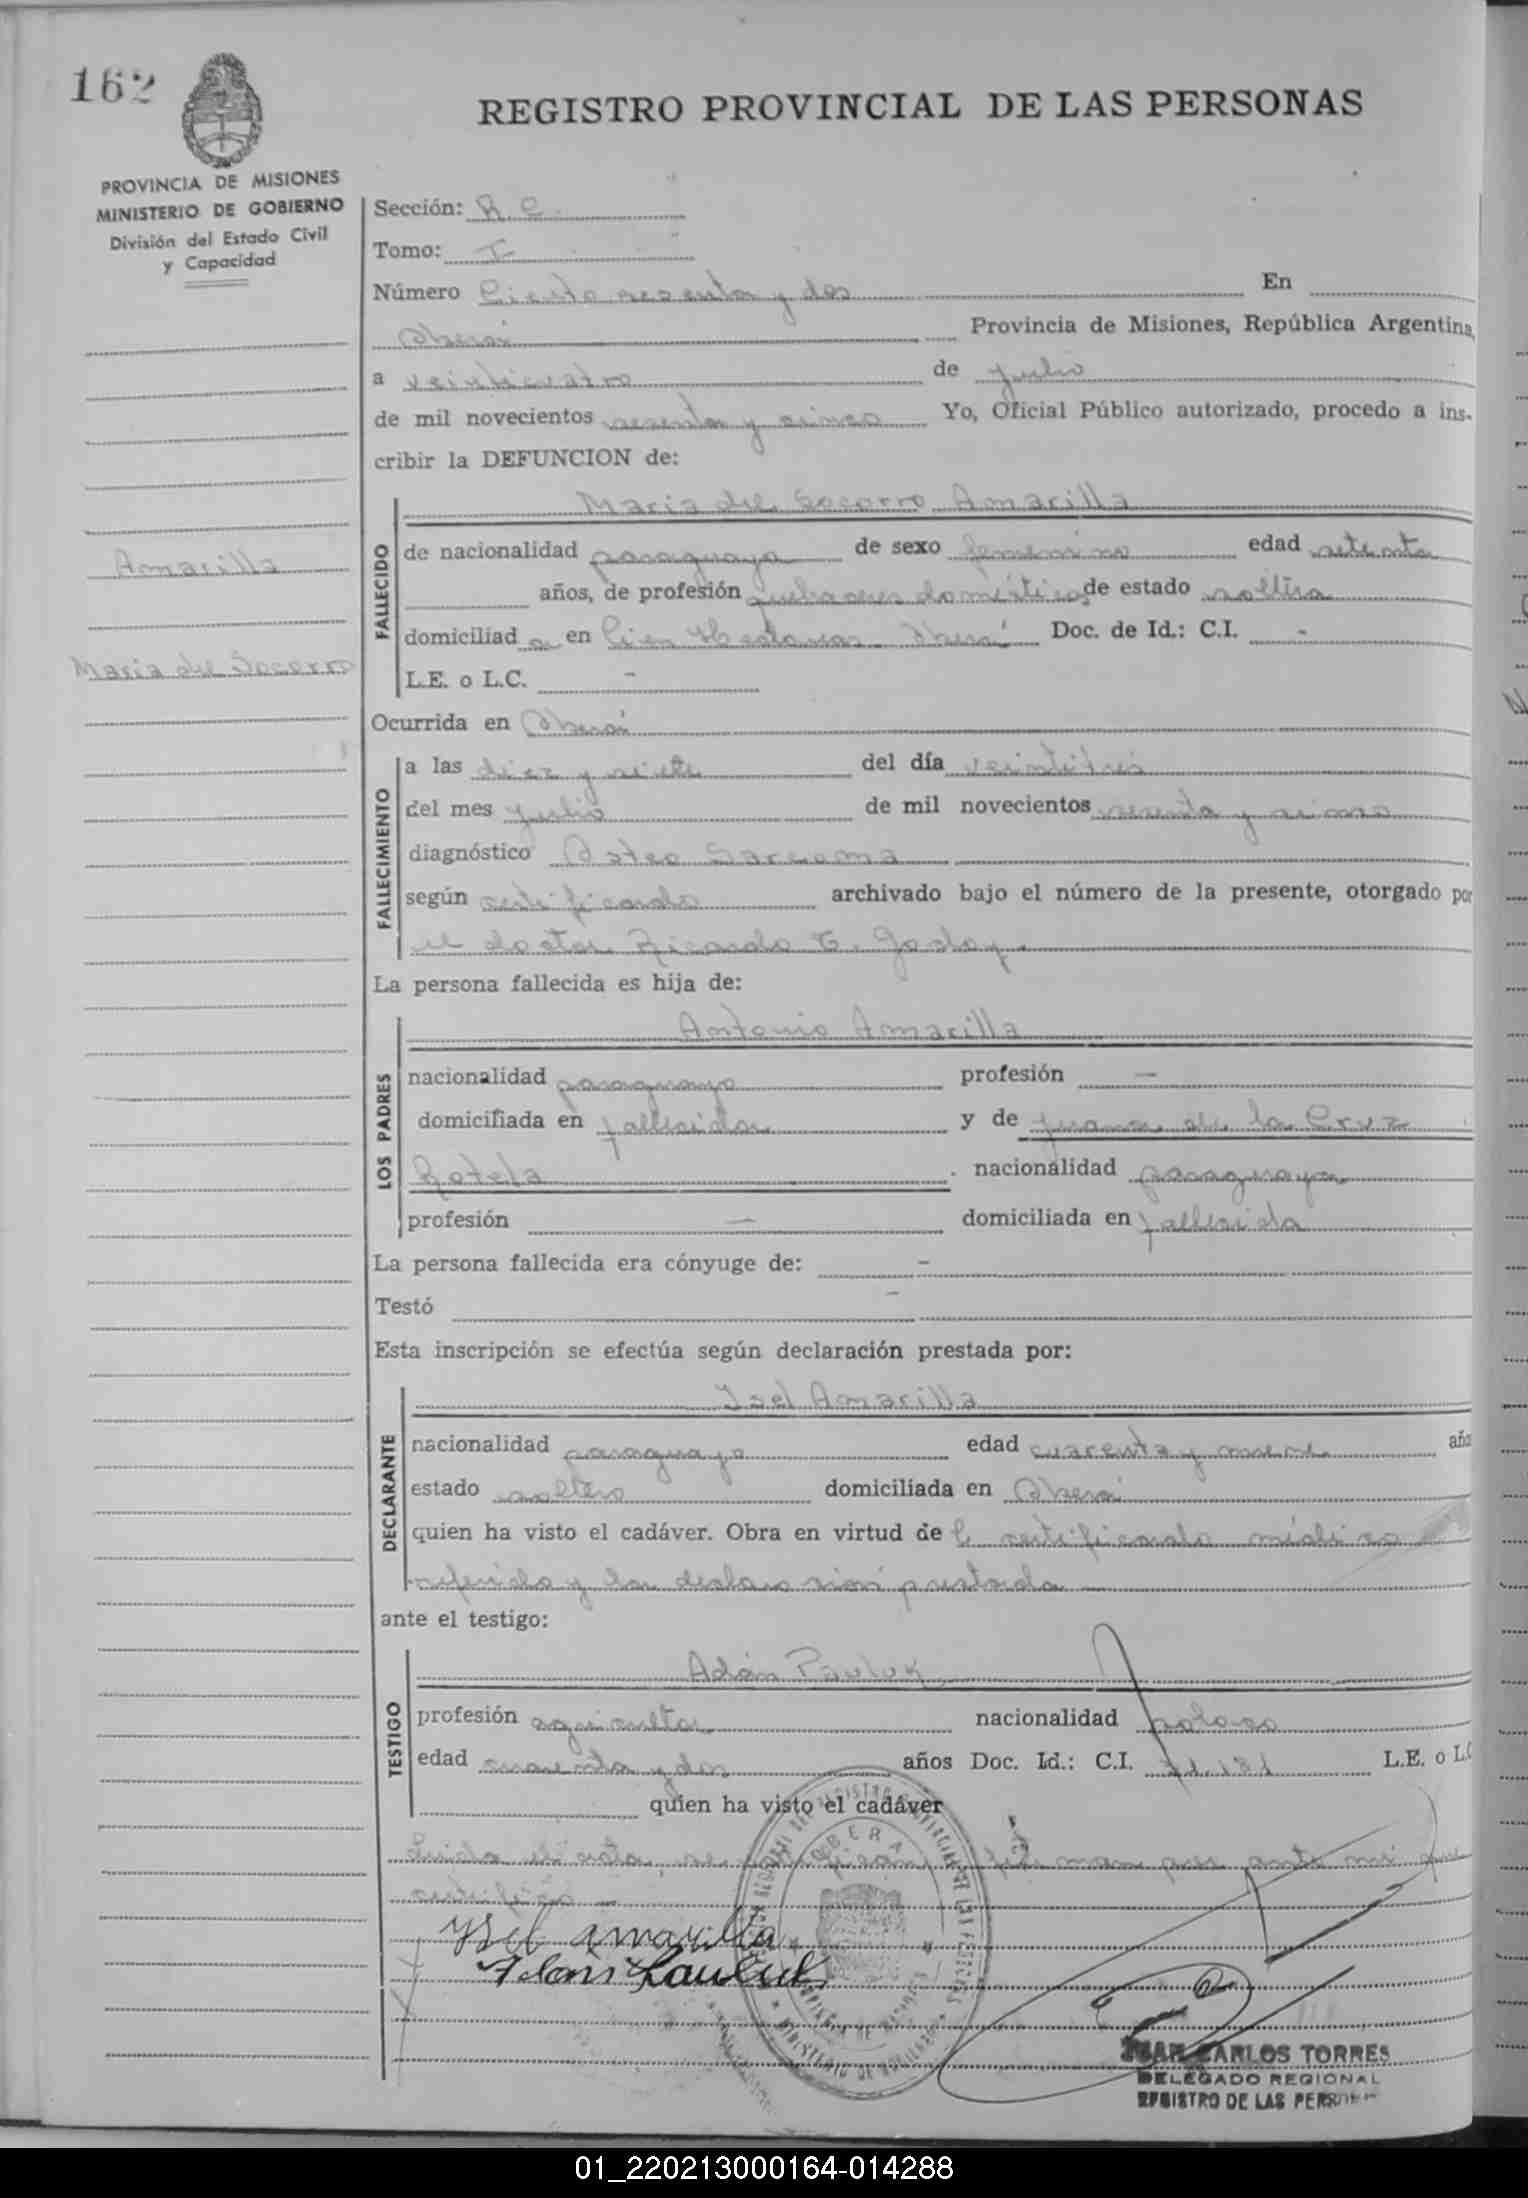 162
REGISTRO PROVINCIAL DE LAS PERSONAS
PROVINCIA DE MISIONES
MINISTERIO DE GOBIERNO
División del Estado Civil
y Capacidad
Sección: R. C.
Tomo: I
Número Ciento sesenta y dos En
Oberá Provincia de Misiones, República Argentina,
a veinticuatro de julio
de mil novecientos sesenta y cinco Yo, Oficial Público autorizado, procedo a ins-
cribir la DEFUNCION de:
Amarilla
Maria del Socorro
FALLECIDO
Maria del Socorro Amarilla
de nacionalidad paraguaya de sexo femenino edad setenta
años, de profesión quehaceres domésticos de estado soltera
domiciliad a en Cien Hectareas Oberá Doc. de Id.: C.I. -
L.E. o L.C. -
Ocurrida en Oberá
FALLECIMIENTO
a las diez y siete del día veintitres
del mes julio de mil novecientos sesenta y cinco
diagnóstico Osteo Sarcoma
según certificado archivado bajo el número de la presente, otorgado por
el doctor Ricardo E. Godoy.
La persona fallecida es hija de:
LOS PADRES
Antonio Amarilla
nacionalidad paraguayo profesión —
domiciliada en fallecido y de Juana de la Cruz
Rotela . nacionalidad paraguaya
profesión — domiciliada en fallecida
La persona fallecida era cónyuge de: -
Testó -
Esta inscripción se efectúa según declaración prestada por:
DECLARANTE
Isel Amarilla
nacionalidad paraguayo edad cuarenta y nueve año
estado soltero domiciliada en Oberá
quien ha visto el cadáver. Obra en virtud de l certificado médico
referido y la declaración prestada —
ante el testigo:
TESTIGO
Adán Pauluk
profesión agricultor nacionalidad polaco
edad cuarenta y dos años Doc. Id.: C.I. 71.181 L.E. o L.C
quien ha visto el cadáver
Leida el acta, se ratifican firman por ante mi que
certifico —
Ysel Amarilla
Adan Pauluk
OBERA
MINISTERIO DE GOBIERNO
JUAN CARLOS TORRES
DELEGADO REGIONAL
REGISTRO DE LAS PERSONAS
01_220213000164-014288